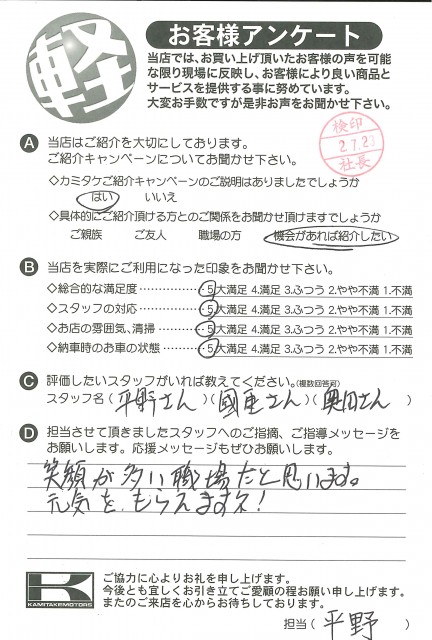 軽
お客様アンケート
当店では、お買い上げ頂いたお客様の声を可能
な限り現場に反映し、お客様により良い商品と
サービスを提供する事に努めています。
大変お手数ですが是非お声をお聞かせ下さい。
検印
27.2.2
社長
A 当店はご紹介を大切にしております。
ご紹介キャンペーンについてお聞かせ下さい。
◇カミタケご紹介キャンペーンのご説明はありましたでしょうか
はい いいえ
◇具体的にご紹介頂ける方とのご関係をお聞かせ頂けますでしょうか
ご親族 ご友人 職場の方 機会があれば紹介したい
B 当店を実際にご利用になった印象をお聞かせ下さい。
◇総合的な満足度……………5大満足 4.満足 3.ふつう 2.やや不満 1.不満
◇スタッフの対応……………5大満足 4.満足 3.ふつう 2.やや不満 1.不満
◇お店の雰囲気、清掃………5大満足 4.満足 3.ふつう 2.やや不満 1.不満
◇納車時のお車の状態………5大満足 4.満足 3.ふつう 2.やや不満 1.不満
C 評価したいスタッフがいれば教えてください。(複数回答可)
スタッフ名(平野さん)(國重さん)(奥田さん)
D 担当させて頂きましたスタッフへのご指摘、ご指導メッセージを
お願いします。応援メッセージもぜひお願いします。
笑顔が多い職場だと思います。
元気を、もらえますネ!
K
KAMITAKEMOTORS
ご協力に心よりお礼を申し上げます。
今後とも宜しくお引き立てご愛顧の程お願い申し上げます。
またのご来店を心からお待ちしております。
担当(平野)